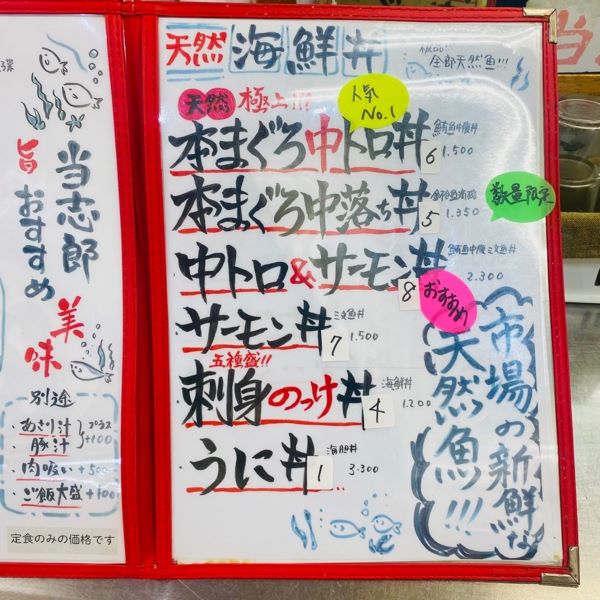 天然海鮮丼
全部天然魚!!!
天然 極上!!!
人気
No.1
本まぐろ中トロ丼 6 1.500
数量限定
本まぐろ中落ち丼 5 1.350
中トロ&サーモン丼 8 2.300
おすすめ
サーモン丼 7 三文魚丼 1.500
五種盛!!
刺身のっけ丼 4 海鮮丼 1.200
うに丼 1 海胆丼 3.300
市場の新鮮な
天然魚!!!
当志郎
旨
おすすめ
美味
別途
・あさり汁
・豚汁
プラス
+100
・肉吸い +500
・ご飯大盛 +100
定食のみの価格です
当